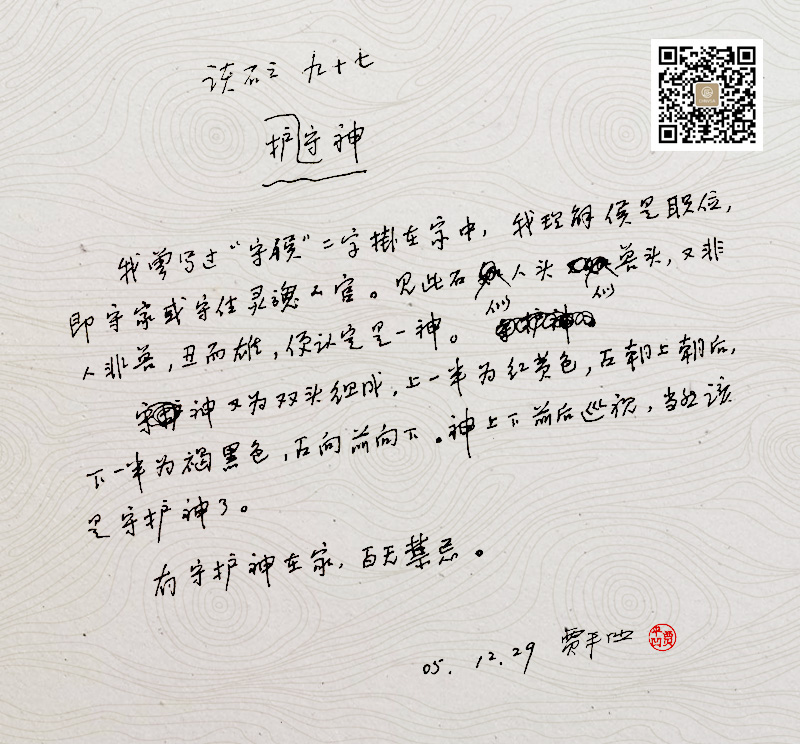 读石之九十七
护守神
我曾写过“守候”二字掛在家中，我理解侯是职位，
即守家或守住灵魂之官。见此石似人头似兽头，又非
人非兽，丑而雄，便认定是一神。
神又为双头组成，上一半为红黄色，石朝上朝后，
下一半为褐黑色，石向前向下。神上下前后巡视，当然该
是守护神了。
有守护神在家，百无禁忌。
05.12.29 贾平凹